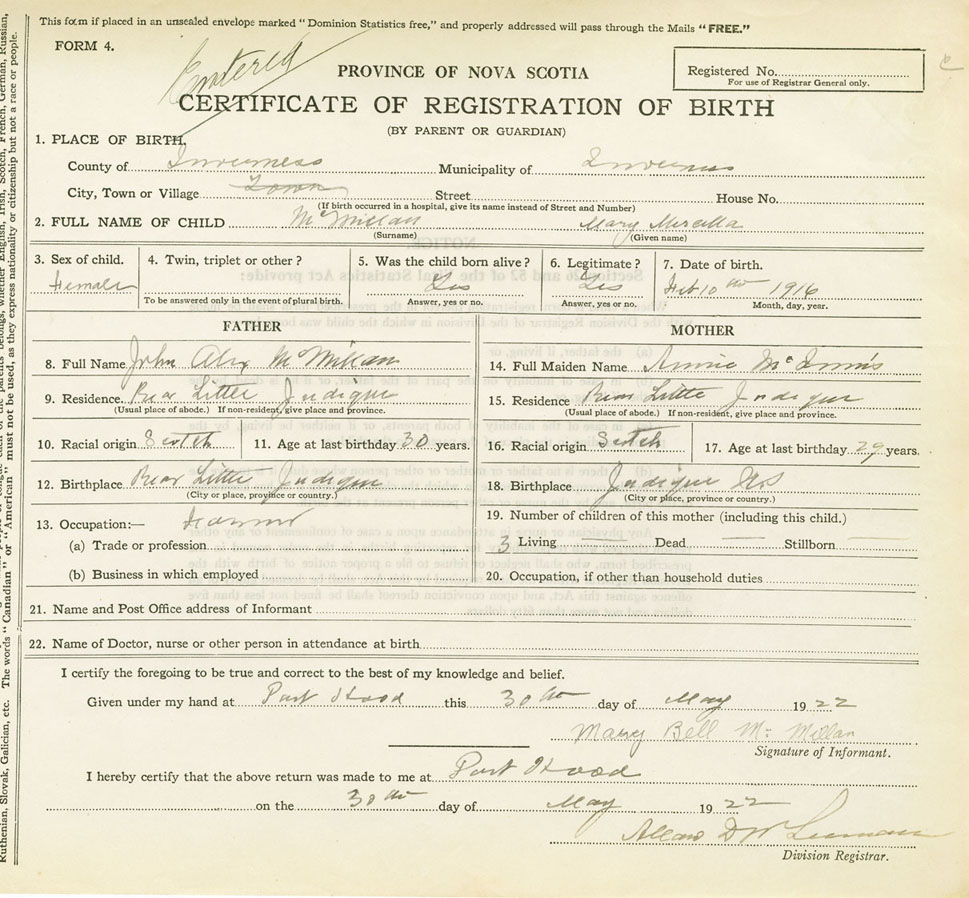 This form if placed in an unsealed envelope marked "Dominion Statistics free," and properly addressed will pass through the Mails "FREE."
FORM 4.
Entered
PROVINCE OF NOVA SCOTIA
Registered No.
For use of Registrar General only.
CERTIFICATE OF REGISTRATION OF BIRTH
(BY PARENT OR GUARDIAN)
1. PLACE OF BIRTH.
County of Inverness Municipality of Inverness
City, Town or Village Town Street House No.
(If birth occurred in a hospital, give its name instead of Street and Number)
2. FULL NAME OF CHILD McMillan Mary
(Surname) (Given name)
3. Sex of child. 4. Twin, triplet or other? 5. Was the child born alive? 6. Legitimate? 7. Date of birth.
Female Yes Yes Feb 10th 1916
To be answered only in the event of plural birth. Answer, yes or no. Answer, yes or no. Month, day, year.
FATHER MOTHER
8. Full Name John Alex McMillan 14. Full Maiden Name Annie McInnis
9. Residence Rear Little Judique 15. Residence Rear Little Judique
(Usual place of abode.) If non-resident, give place and province. (Usual place of abode.) If non-resident, give place and province.
10. Racial origin Scotch 11. Age at last birthday 30 years. 16. Racial origin Scotch 17. Age at last birthday 29 years.
12. Birthplace Rear Little Judique 18. Birthplace Judique NS
(City or place, province or country.) (City or place, province or country.)
13. Occupation:— Farmer 19. Number of children of this mother (including this child.)
(a) Trade or profession 3 Living Dead — Stillborn —
(b) Business in which employed 20. Occupation, if other than household duties
21. Name and Post Office address of Informant
22. Name of Doctor, nurse or other person in attendance at birth
I certify the foregoing to be true and correct to the best of my knowledge and belief.
Given under my hand at Port Hood this 30th day of May 1922
Mary Bell McMillan
Signature of Informant.
I hereby certify that the above return was made to me at Port Hood
on the 30th day of May 1922
Division Registrar.
Ruthenian, Slovak, Galician, etc. The words "Canadian" or "American" must not be used, as they express nationality or citizenship but not a race or people.